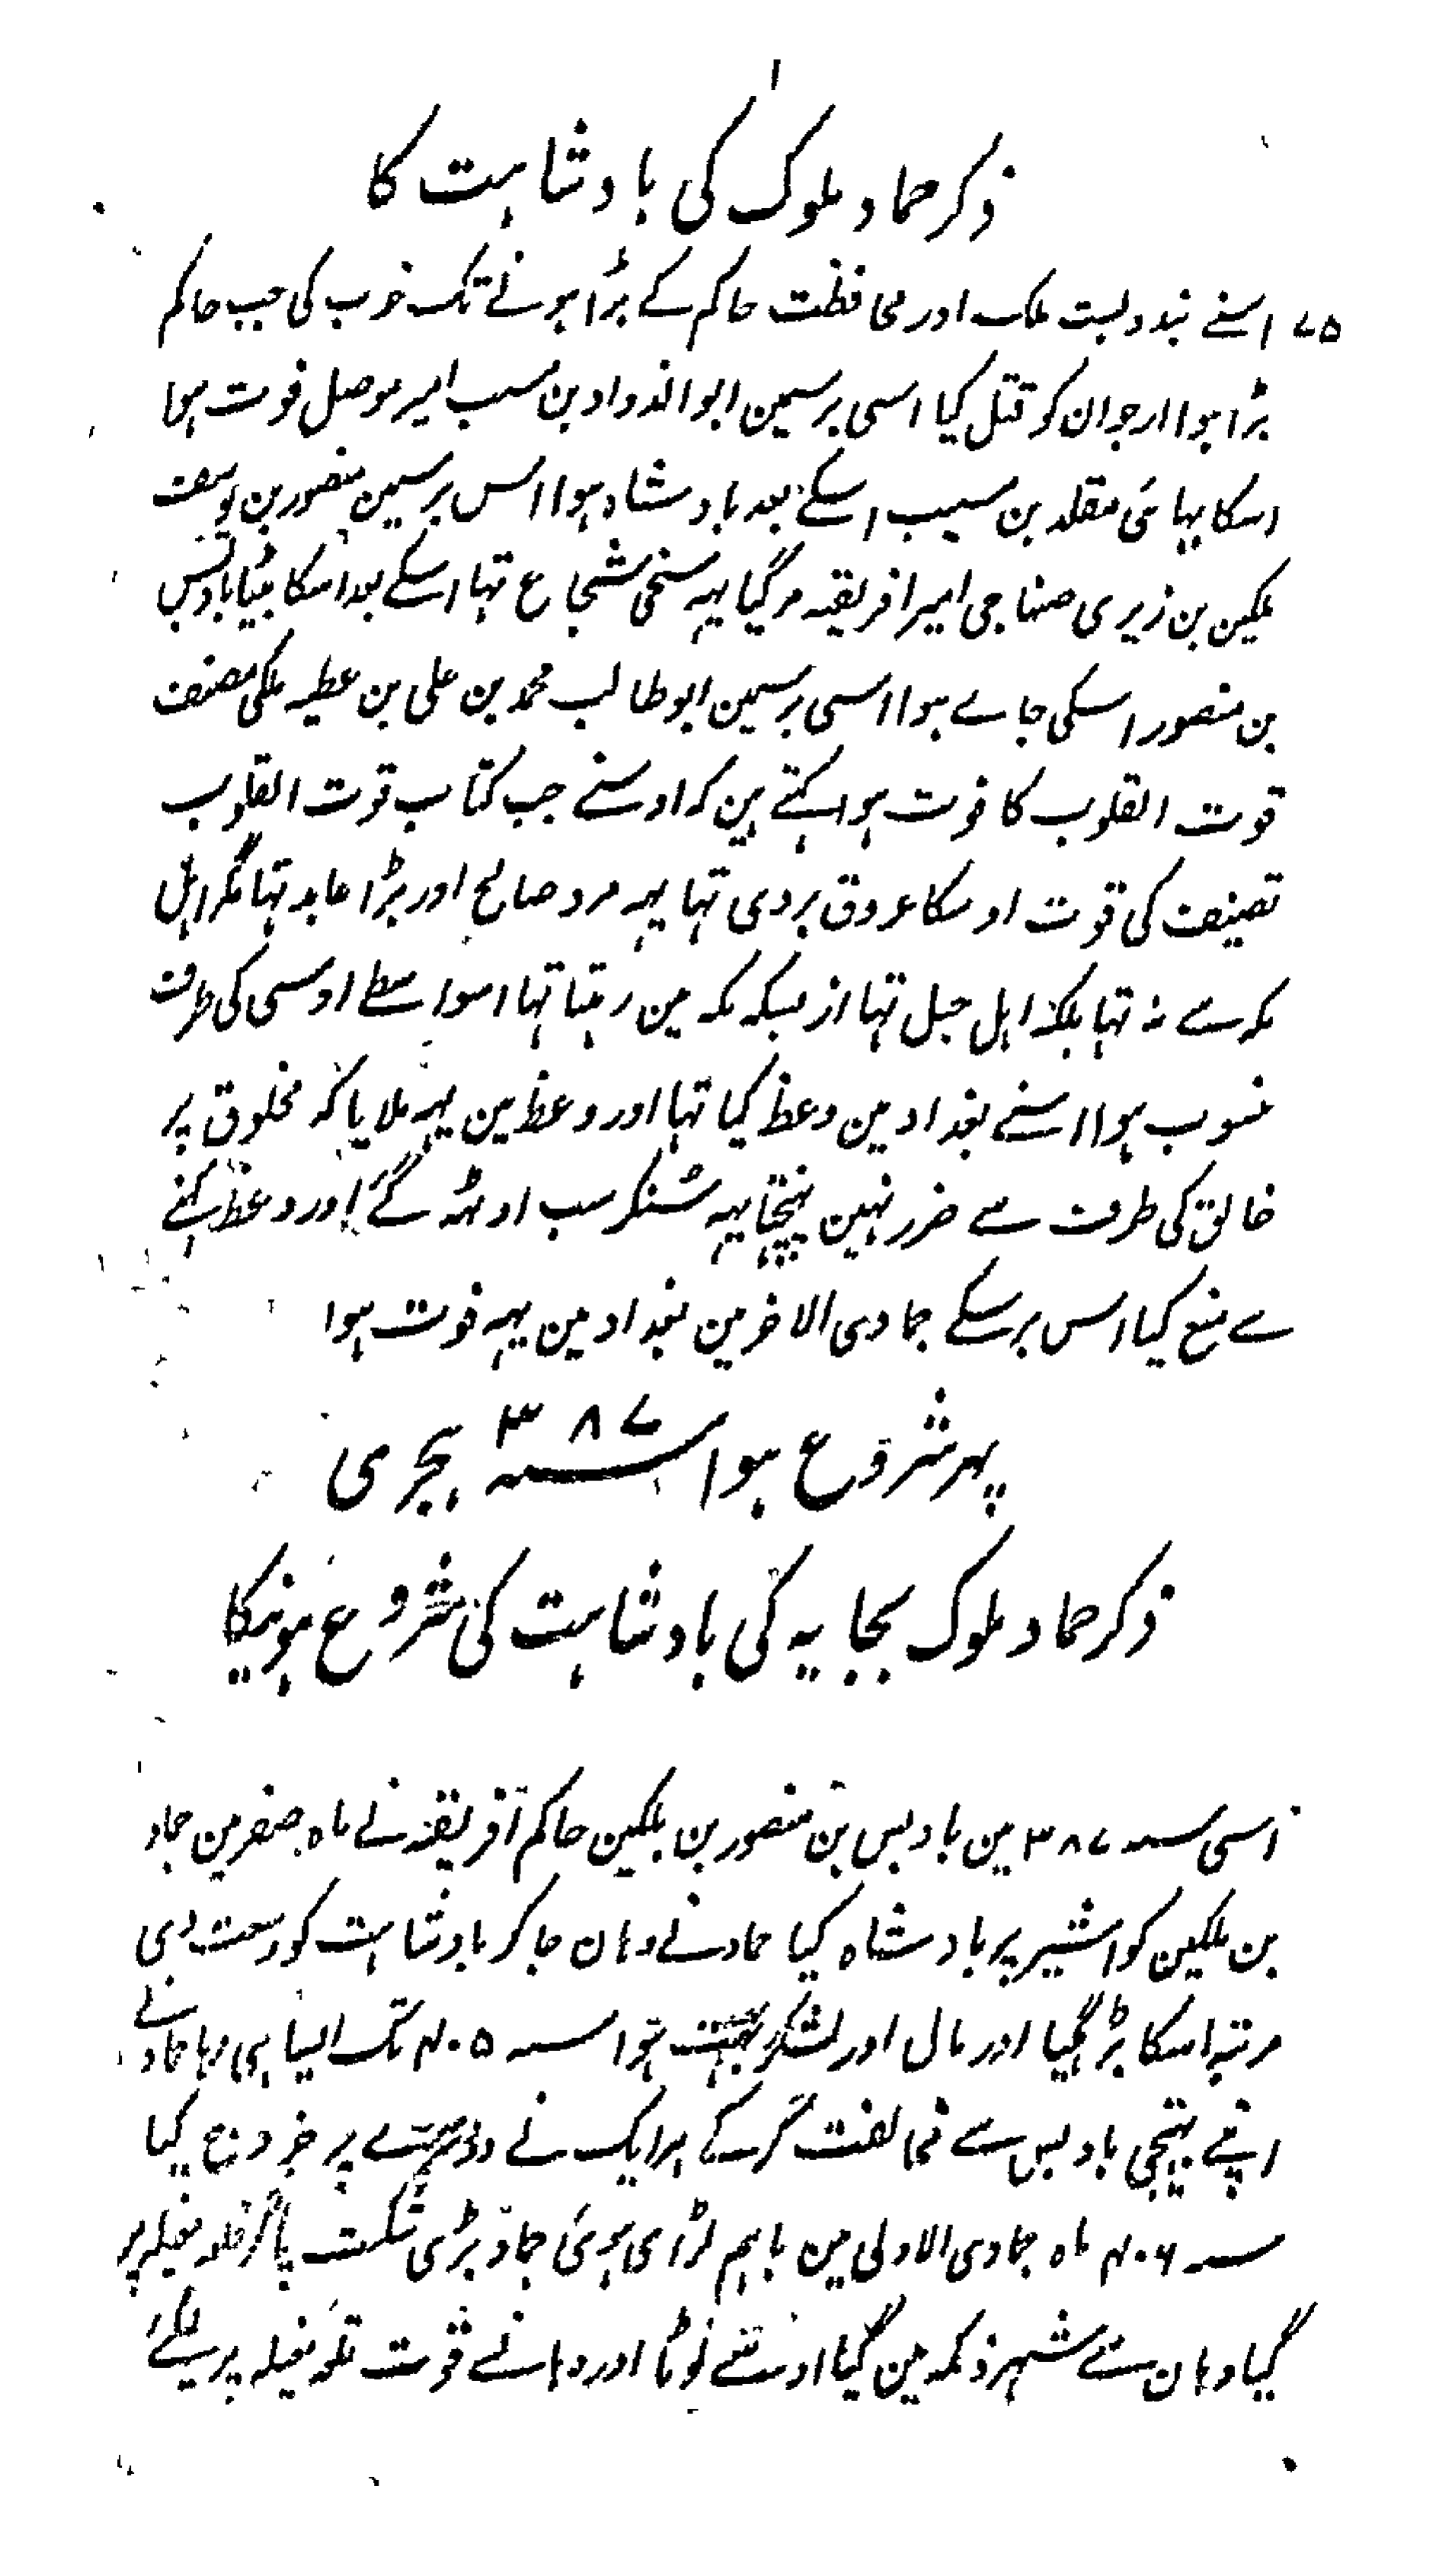 ۱
ذکر حماد ملوک کی بادشاہت کا
۷۵ اسنے بندوبست ملک اور محافظت حاکم کے بڑا ہونے تک خوب کی جب حاکم
بڑا ہوا ارجوان کو قتل کیا اسی برسمین ابو الذواد بن مسیب امیر موصل فوت ہوا
اسکا بہائی مقلد بن مسیب اسکے بعد بادشاہ ہوا اس برسمین منصور بن یوسف
بلکین بن زیری صنہاجی امیر افریقہ مرگیا یہہ سخی شجاع تہا اسکے بعد اسکا بیٹا بادیس
بن منصور اسکی جاے ہوا اسی برسمین ابو طالب محمد بن علی بن عطیہ مکی مصنف
قوت القلوب کا فوت ہوا کہتے ہین کہ اوسنے جب کتاب قوت القلوب
تصنیف کی قوت اوسکا عروق بردی تہا یہہ مرد صالح اور بڑا عابد تہا مگر اہل
مکہ سے نہ تہا بلکہ اہل جبل تہا از بسکہ مکہ مین رہتا تہا اسواسطے اوسی کی طرف
منسوب ہوا اسنے بغداد مین وعظ کیا تہا اور وعظ مین یہہ ملایا کہ مخلوق پر
خالق کی طرف سے ضرر نہین پہنچتا یہہ سنکر سب اوٹہہ گئے اور وعظ کہنے
سے منع کیا اس برسکے جمادی الاخر مین بغداد مین یہہ فوت ہوا
پہر شروع ہوا سنہ ۳۸۷ ہجری
ذکر حماد ملوک بجایہ کی بادشاہت کی شروع ہونیکا
اسی سنہ ۳۸۷ مین بادیس بن منصور بن بلکین حاکم افریقہ نے ماہ صفر مین حماد
بن بلکین کو اشیر پر بادشاہ کیا حماد نے وہان جاکر بادشاہت کو وسعت دی
مرتبہ اسکا بڑہگیا اور مال اور لشکر بہت ہوا سنہ ۴۰۵ تک ایسا ہی رہا حماد نے
اپنے بہتیجی بادیس سے مخالفت کرکے ہر ایک نے دوسرے پر خروج کیا
سنہ ۴۰۶ ماہ جمادی الاولی مین باہم لڑای ہوئی حماد بڑی شکست پاکر قلعہ مغیلہ پر
گیا وہان سے شہر دکمہ مین گیا اوسے لوٹا اور وہانسے قوت قلعہ مغیلہ پر لیگئے